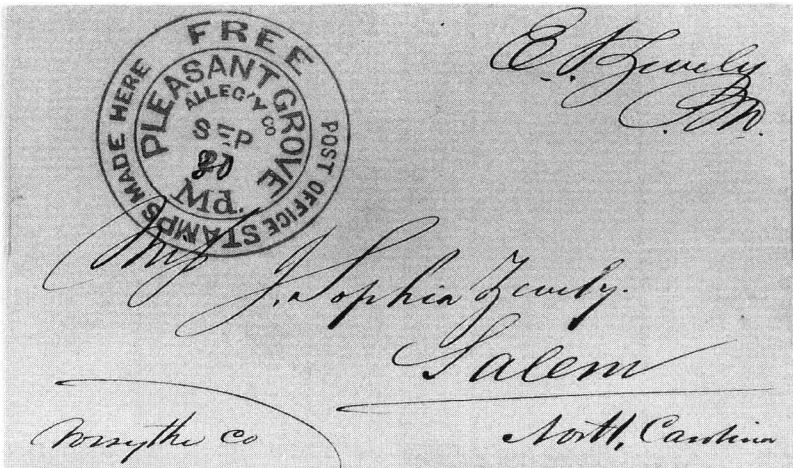 FREE
POST OFFICE STAMPS MADE HERE
PLEASANT GROVE
ALLEG'Y CO
SEP
20
Md.
E. S. Zevely
P.M.
J. Sophia Zevely.
Salem
Forsythe Co
North, Carolina